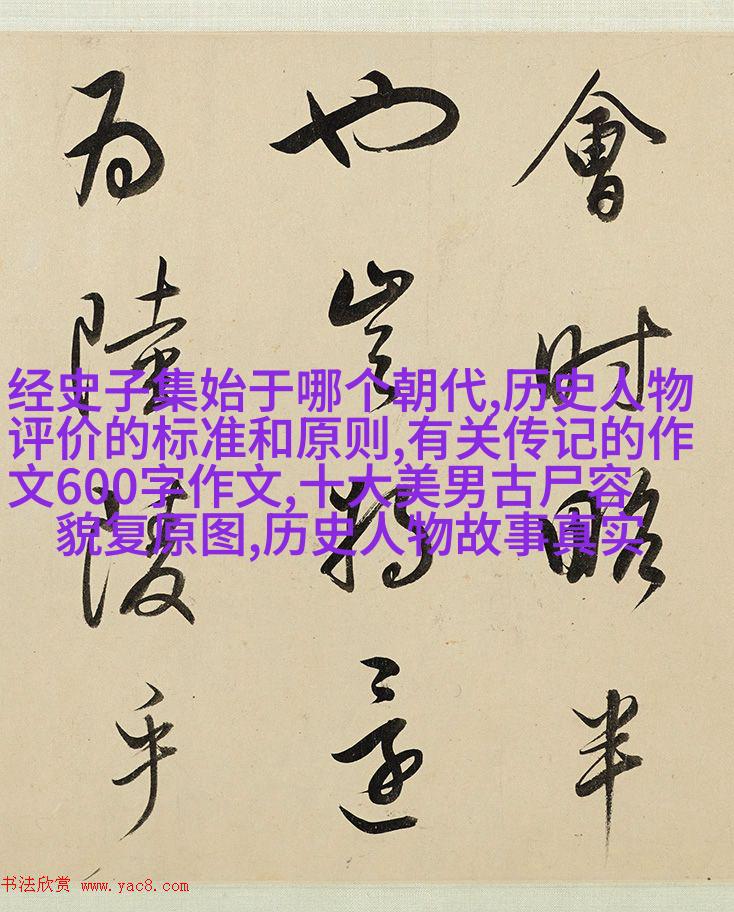 會時略半
也豈將還
為陸陵乎
经史子集始于哪个朝代,历史人物
评价的标准和原则,有关传记的作
文600字作文,十大美男古尸容
貌复原图,历史人物故事真实
书法欣赏 www.yac8.com